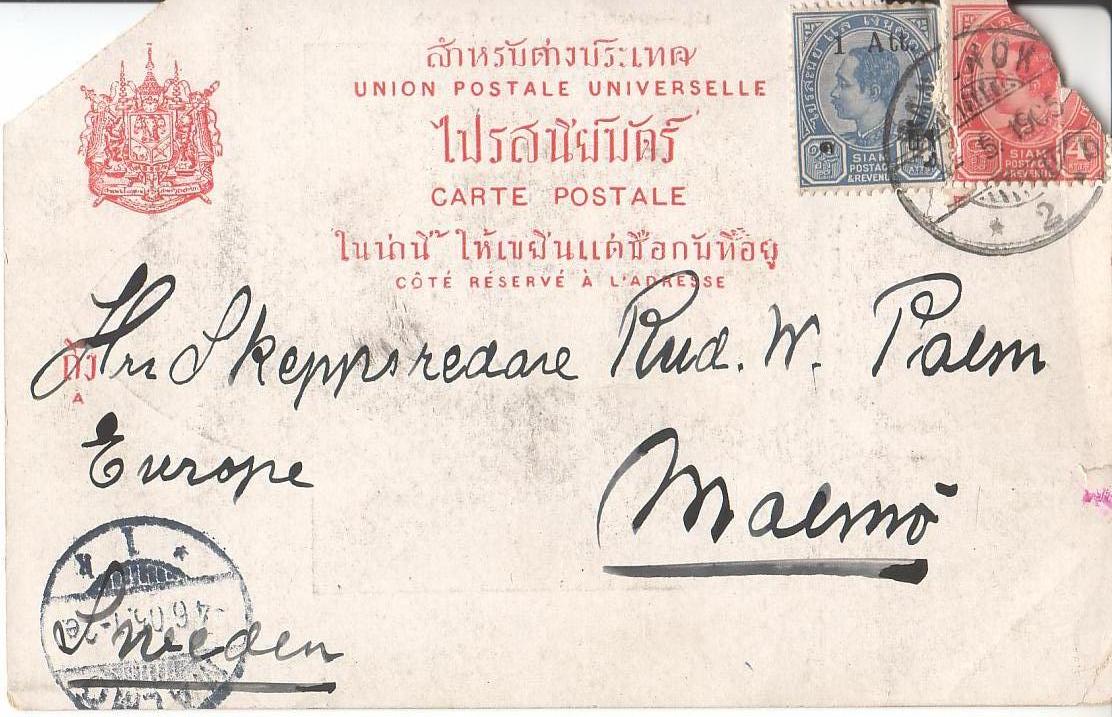 สำหรับต่างประเทศ
UNION POSTALE UNIVERSELLE
ไปรสนียบัตร์
CARTE POSTALE
ในน่านี้ ให้เขียนแต่ชื่อกับที่อยู่
CÔTÉ RÉSERVÉ À L'ADRESSE
1 Att.
SIAM
POSTAGE
& REVENUE
SIAM
POSTAGE
& REVENUE
2
ถึง
A
Hrr Skeppsredare Rud. W. Palm
Europe
Malmö
Sweden